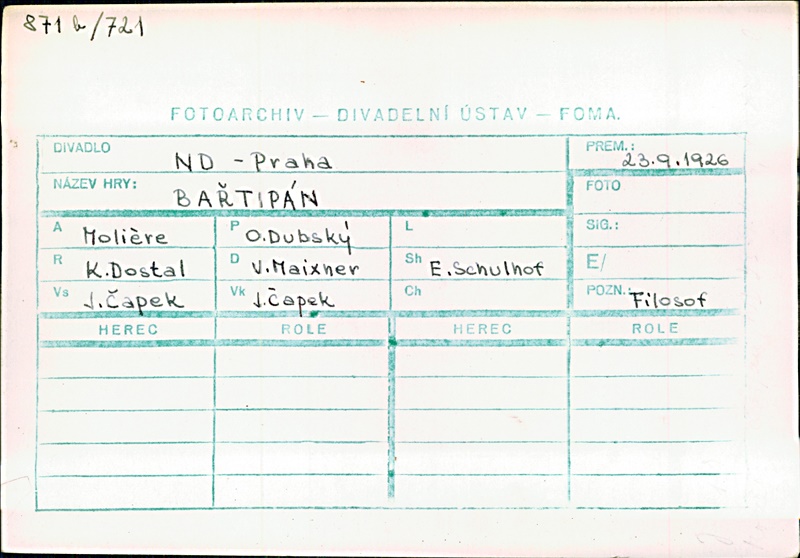 871 b/721
FOTOARCHIV — DIVADELNÍ ÚSTAV — FOMA.
DIVADLO ND - Praha
PREM.: 23.9.1926
NÁZEV HRY: BAŘTIPÁN
FOTO
A Molière P O.Dubský L
SIG.:
R K.Dostal D V.Maixner Sh E.Schulhof
E/
Vs J.Čapek Vk J.Čapek Ch
POZN.: Filosof
HEREC ROLE HEREC ROLE